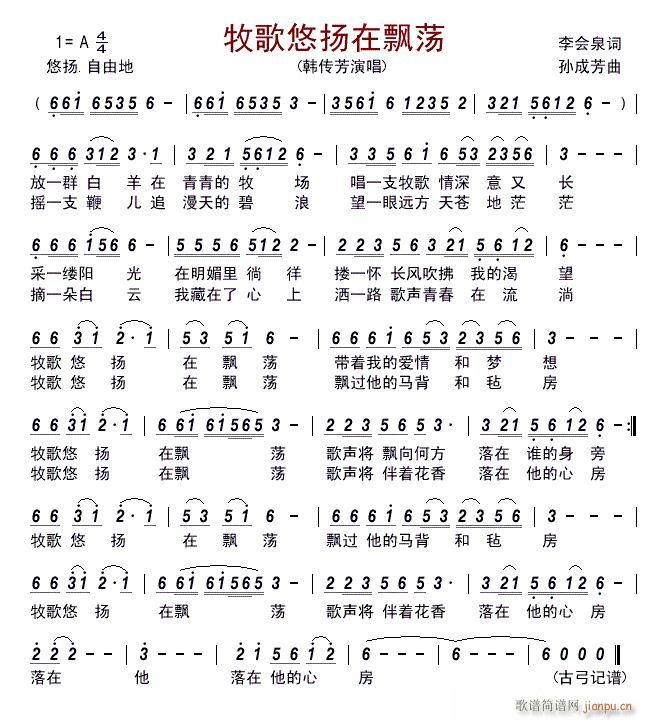 牧歌悠扬在飘荡
1= A 4/4
李会泉词
悠扬.自由地
(韩传芳演唱)
孙成芳曲
( 6 6 i 6 5 3 5 6 - | 6 6 i 6 5 3 5 3 - | 3 3 5 6 1 6 1 2 3 5 2 | 3 2 1 5 6 1 2 6 - ) |
6 6 6 3 1 2 3 · 1 | 3 2 1 5 6 1 2 - | 3 3 5 6 i 6 5 3 2 3 5 6 | 3 - - - |
放一群 白 羊 在 青青的 牧 场 唱一支牧歌 情深 意 又 长
摇一支 鞭 儿 追 漫天的 碧 浪 望一眼远方 天苍 地 茫 茫
6 6 6 i 5 6 6 - | 5 5 5 6 5 1 2 - | 2 2 3 5 6 3 2 1 5 6 1 2 | 6 - - - |
采一缕阳 光 在明媚里 徜 徉 搂一怀 长风吹拂 我的渴 望
摘一朵白 云 我藏在了 心 上 洒一路 歌声青春 在 流 淌
6 6 3 i 2 · i | 5 3 5 i 6 - | 6 6 6 i 6 5 3 2 3 5 6 | 3 - - - |
牧歌 悠 扬 在 飘 荡 带着我的爱情 和 梦 想
牧歌 悠 扬 在 飘 荡 飘过他的马背 和 毡 房
6 6 3 i 2 · i | 6 6 i 6 i 5 6 5 3 - | 2 2 3 5 6 5 3 · | 2 1 5 6 1 2 6 - :||
牧歌悠 扬 在飘 荡 歌声将 飘向何方 落在 谁的身 旁
牧歌悠 扬 在飘 荡 歌声将 伴着花香 落在 他的心 房
6 6 3 i 2 · i | 5 3 5 i 6 - | 6 6 6 i 6 5 3 2 3 5 6 | 3 - - - |
牧歌悠 扬 在 飘 荡 飘过 他的马背 和 毡 房
6 6 3 i 2 · i | 6 6 i 6 i 5 6 5 3 - | 2 2 3 5 6 5 3 · | 3 2 1 5 6 1 2 6 - |
牧歌悠 扬 在飘 荡 歌声将 伴着花香 落在 他的心 房
2 2 2 - | 2 - - - | 3 2 1 5 6 1 2 | 6 - - - | 6 - - - | 6 0 0 0 ||
落在 他 落在 他的心 房 (古弓记谱)
歌谱简谱网
jianpu.cn